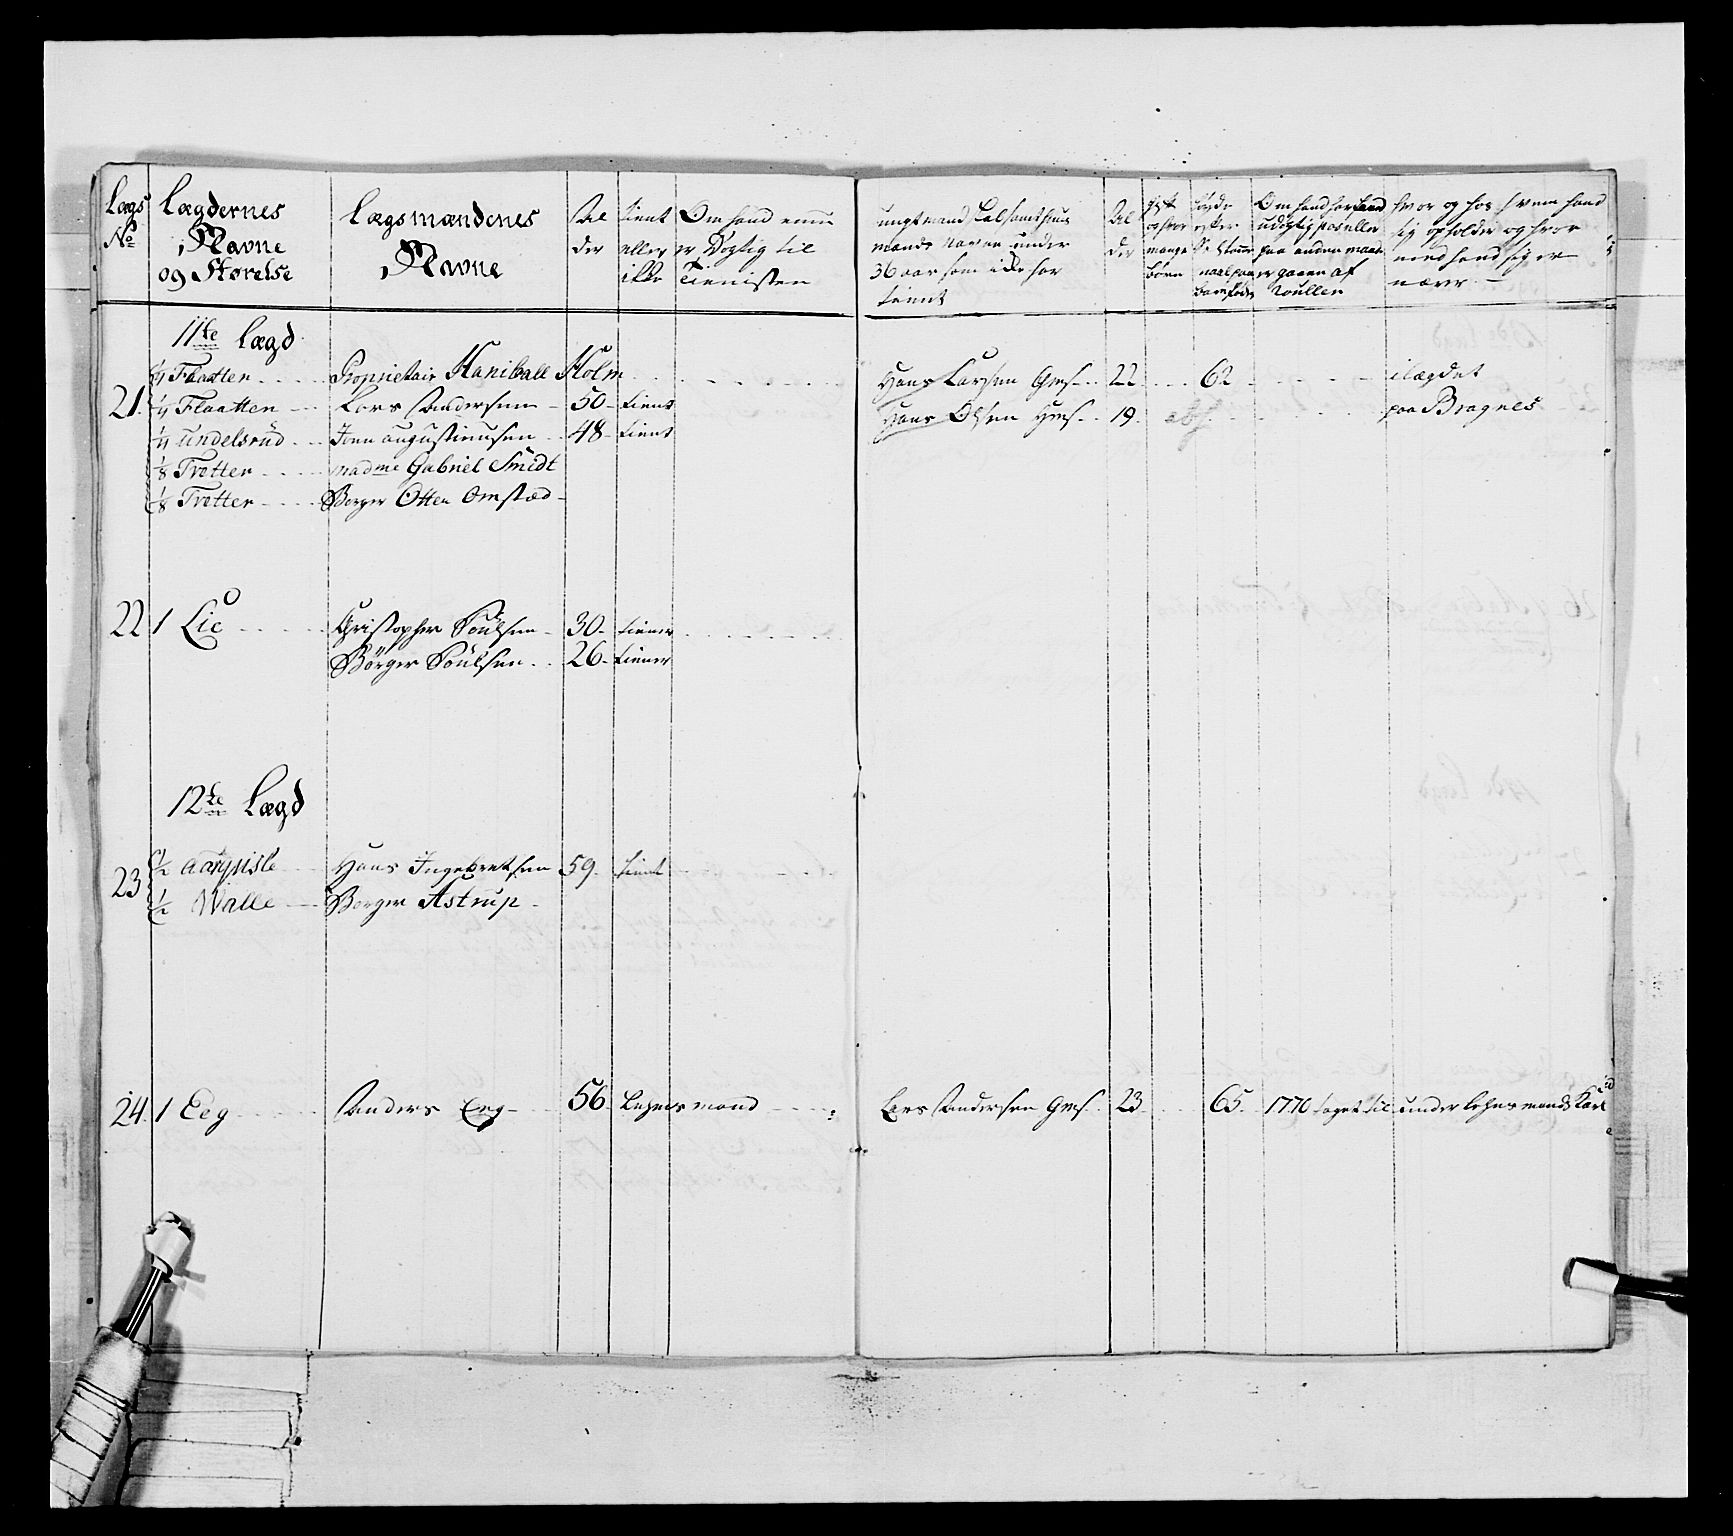 Lægs No
Lægdernes Navne og Størelse
Lægsmændenes Navne
Al der
tient eller ikke
Om hand ennu er Dygtig til Tienisten
ungt mand Navne under 36 aar som icke har tient
Al der
gift og hvor mange børn
høyde efter
Om hand har udygtig pas eller paa anden maade er gaaen af Roullen
hvor og hos hvem hand sig opholder og hvor med hand sig er nærer
11te Lægd
21.
1/4 Flaatten Proprietair Haniball Holm Hans Larsen Gms 22 62 i lægdet
1/4 Flaatten Lars Andersen 50 tient Hans Olsen Gms 19 paa Bragnes
1/4 Undelsrud Jens Augustinusen 48 tient
1/8 Tretten madme Gabriel Smidt
1/8 Tretten Borger Otten Omsted
22 1 Lie Christopher Poulsen 30 tiener
Børger Poulsen 26 tiener
12te Lægd
23
1/2 Hans Ingebretsen 59 tient
1/2 Walle Borger Astrup
24. 1 Eeg Anders Eeg 56 Lehnsmand Lars Andersen Gms 23 65. 1770 taget til under lehnsmands Karl